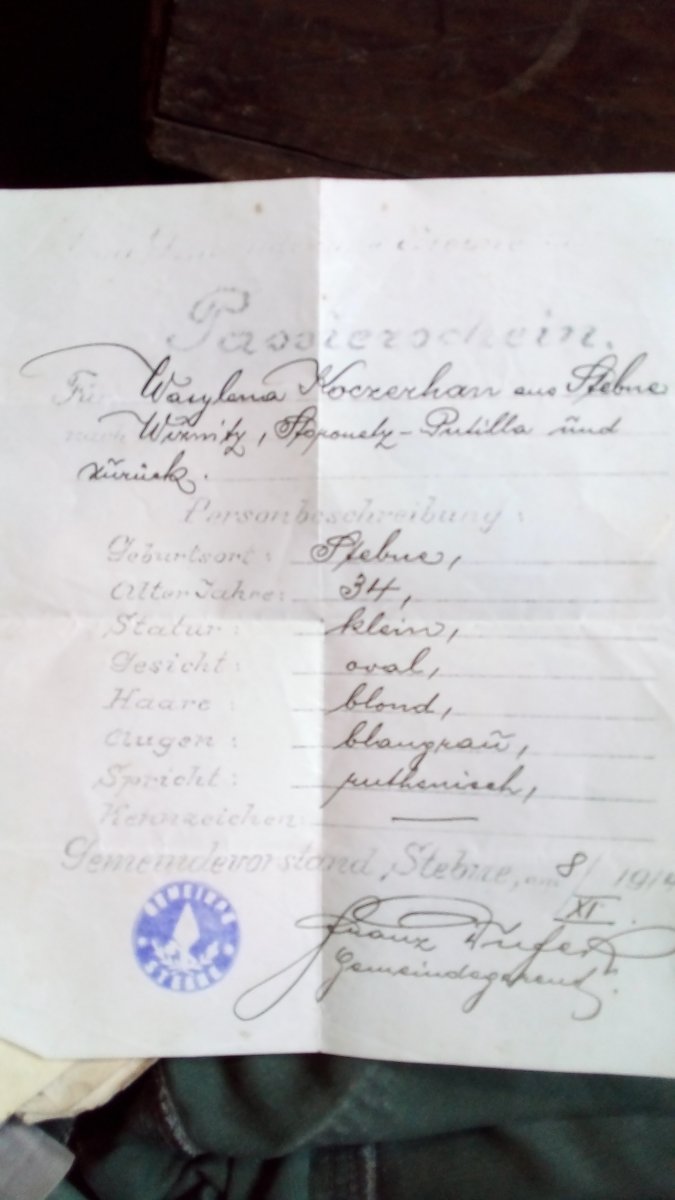 Passierschein.
Für Wasylena Koczerhan aus Stebne
nach Wiznitz, Storonetz-Putilla und
zurück.
Personbeschreibung:
Geburtsort: Stebne,
Alter Jahre: 34,
Statur: klein,
Gesicht: oval,
Haare: blond,
Augen: blaugrau,
Spricht: ruthenisch,
Kennzeichen: —
Gemeindevorstand, Stebne, am 8/XI 191
GEMEINDE STEBNE
Franz
Gemeindegerent.